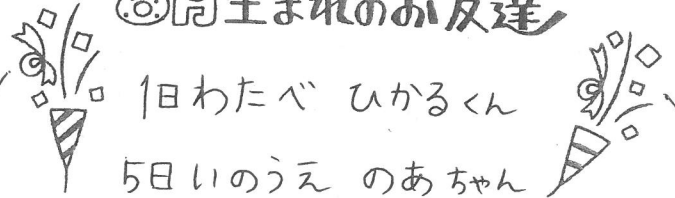 月生まれのお友達
1日わたべ ひかるくん
5日いのうえ のあちゃん